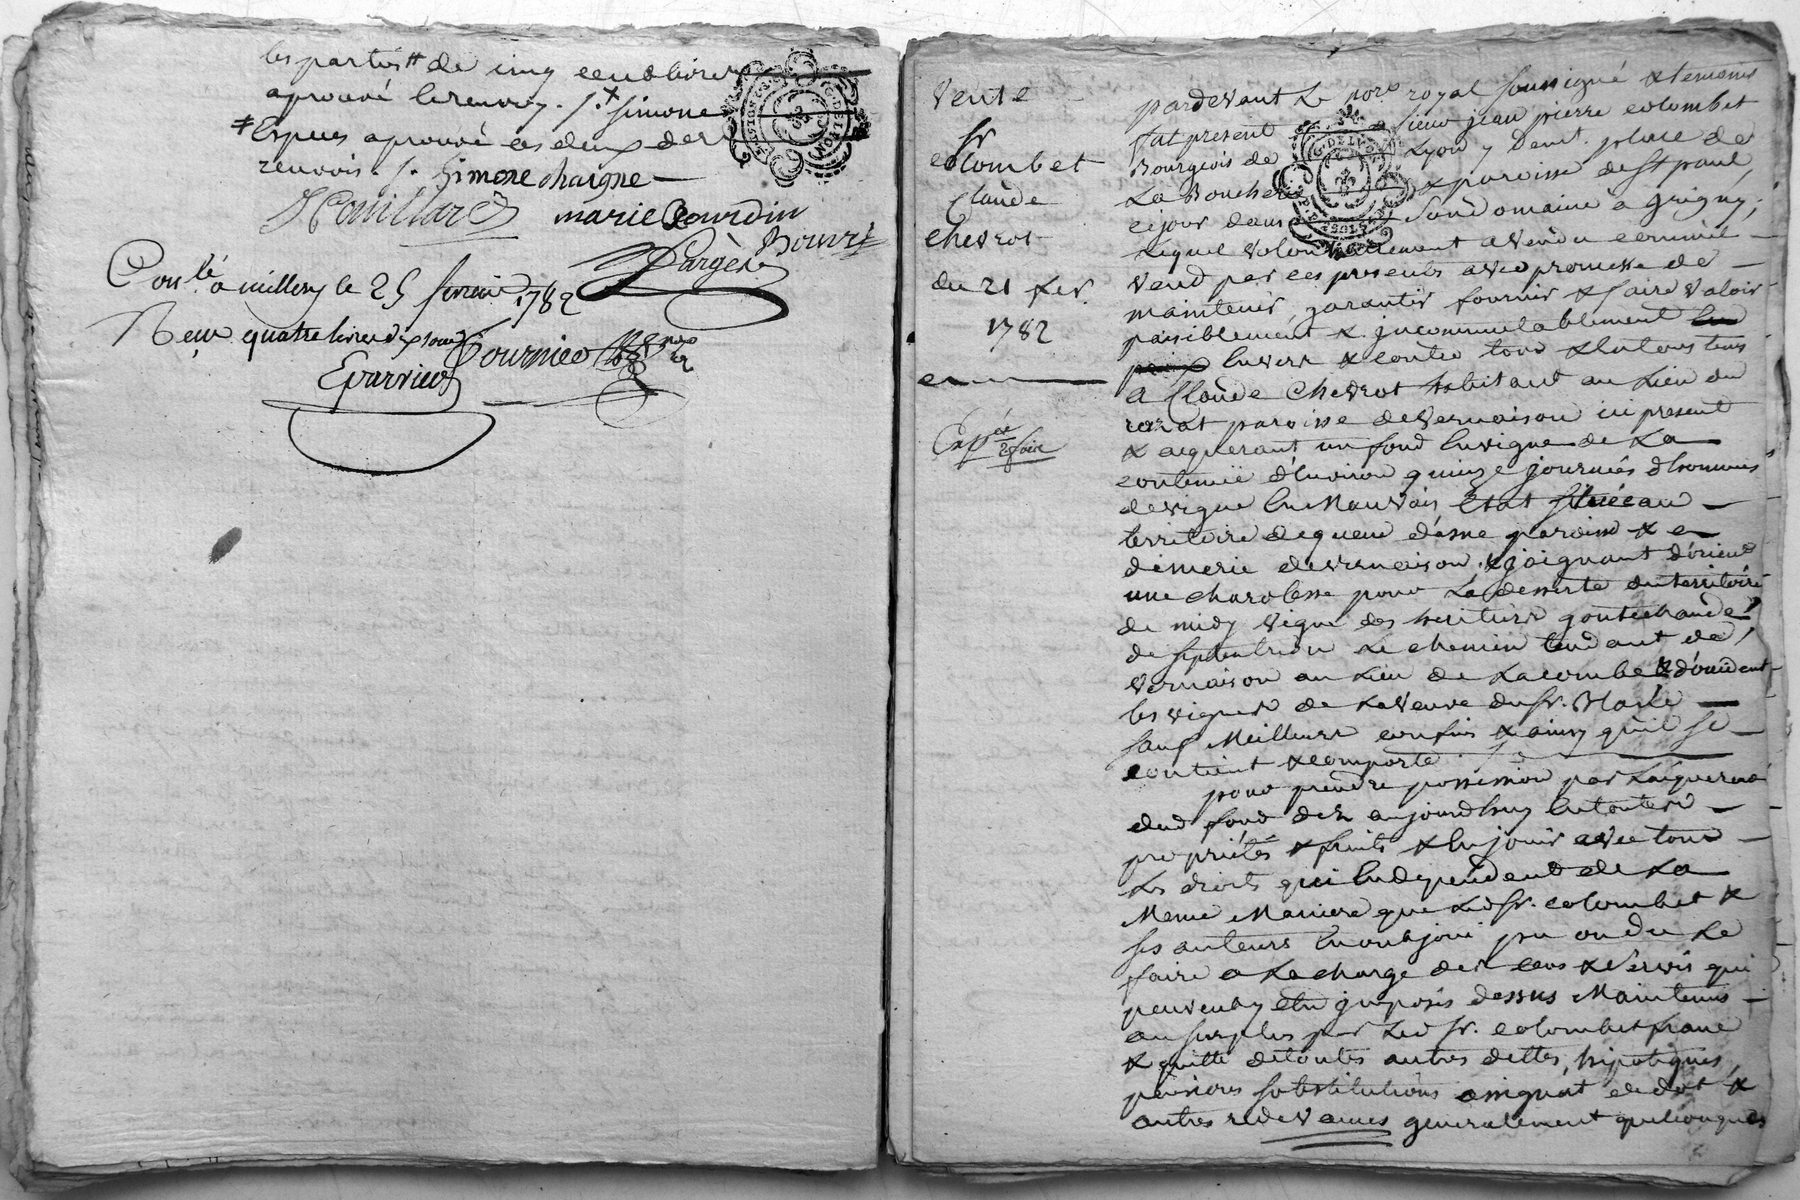 les partis # de cinq cent livres
aprouvé le renvoy . /. x Simone
# Expues aprouvé es deux der
renvois . /. Simone chaigne
Marie Bourdin
Bouvri
Con.lé a millery le 25 fevrier 1782
Reçu quatre livres dix sous
Fournier
Eparvier
Vente
Sr
colombet
Claude
Chevrot
du 21 fev.
1782
Exp.ée
2 fois
pardevant Le no.re royal soussigné & temoins
fut present Sieur jean pierre colombet
Bourgeois de Lyon y demt. place de
La Boucherie & paroisse de St paul
ce jour dans son domaine à grigny,
Lequel volontairement a vendu comme il
vend par ces presentes avec promesse de
maintenir, garantir fournir & faire valoir
paisiblement & incommutablement
Envers & contre tous & En tous tems
a Claude Chevrot habitant au Lieu du
paroisse de vernaison ici present
& aquerant un fond En vigne de La
contenüe d'Environ quinze journées d'hommes
de vigne En Mauvais Etat situé au
territoire de queue d'asne paroisse & e
dimerie de vernaison, & joignant d'orient
une charolesse pour La desserte du territoire
de midy vigne des heritiers goutechaude
de septentrion Le chemin tendant de
vernaison au Lieu de Lacombe & d'occident
les vignes de La Veuve du Sr.
sauf Meilleurs confins & ainsy qu'il se
contient & comporte . /.
pour prendre possession par L'aquereur
dud fond dez aujourdhuy En toutes
propriétés & fruits & En jouir avec tous
Les droits qui En dependent de La
Meme Maniere que Led Sr. colombet &
ses auteurs En ont joui pu ou du Le
faire a La charge des cens & servis qui
peuvent y etre imposés dessus Maintenus
au surplus par Led Sr. colombet franc
& quitte de toutes autres dettes, hipotiques,
pensions substitutions assignat de dot &
autres redevances generalement quelconques